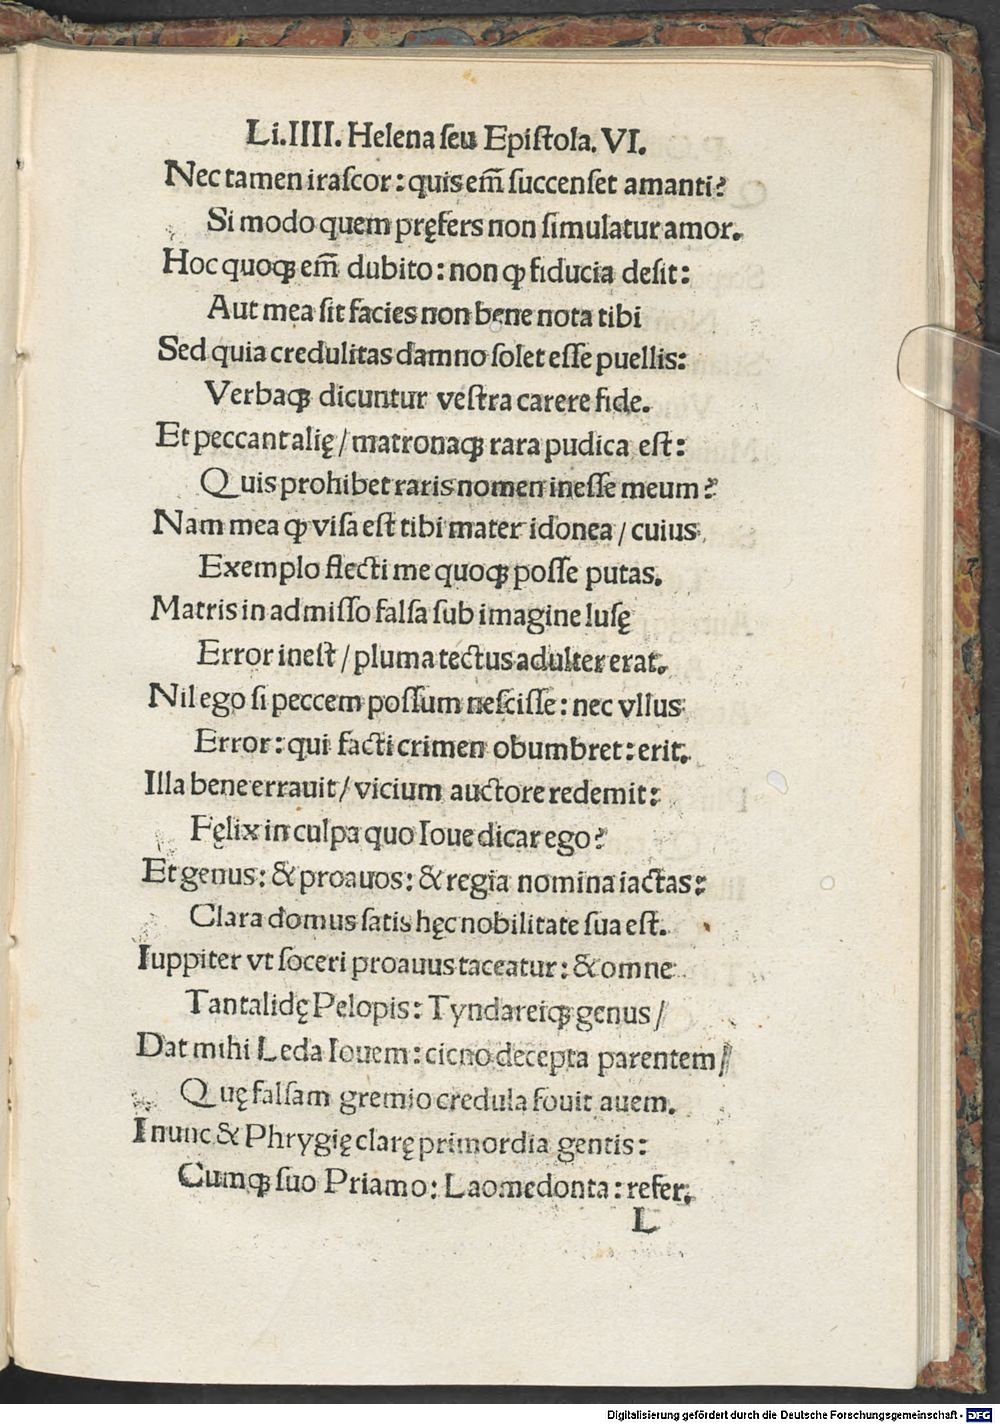 Li.IIII. Helena ſeu Epiſtola. VI.
Nec tamen iraſcor: quis em̃ ſuccenſet amanti?
Si modo quem pręfers non ſimulatur amor.
Hoc quoqꝫ em̃ dubito: non ꝙ fiducia deſit:
Aut mea ſit facies non bene nota tibi
Sed quia credulitas damno ſolet eſſe puellis:
Verbaqꝫ dicuntur veſtra carere fide.
Et peccant alię / matronaqꝫ rara pudica eſt:
Quis prohibet raris nomen ineſſe meum?
Nam mea ꝙ viſa eſt tibi mater idonea / cuius
Exemplo flecti me quoqꝫ poſſe putas.
Matris in admiſſo falſa ſub imagine luſę
Error ineſt / pluma tectus adulter erat.
Nil ego ſi peccem poſſum neſciſſe: nec vllus
Error: qui facti crimen obumbret: erit.
Illa bene errauit / vicium auctore redemit:
Fęlix in culpa quo Ioue dicar ego?
Et genus: & proauos: & regia nomina iactas:
Clara domus ſatis hęc nobilitate ſua eſt.
Iuppiter vt ſoceri proauus taceatur: & omne
Tantalidę Pelopis: Tyndareiqꝫ genus /
Dat mihi Leda Iouem: cicno decepta parentem /
Quę falſam gremio credula fouit auem.
I nunc & Phrygię clarę primordia gentis:
Cumqꝫ ſuo Priamo: Laomedonta: refer.
L
Digitalisierung gefördert durch die Deutsche Forschungsgemeinschaft - DFG